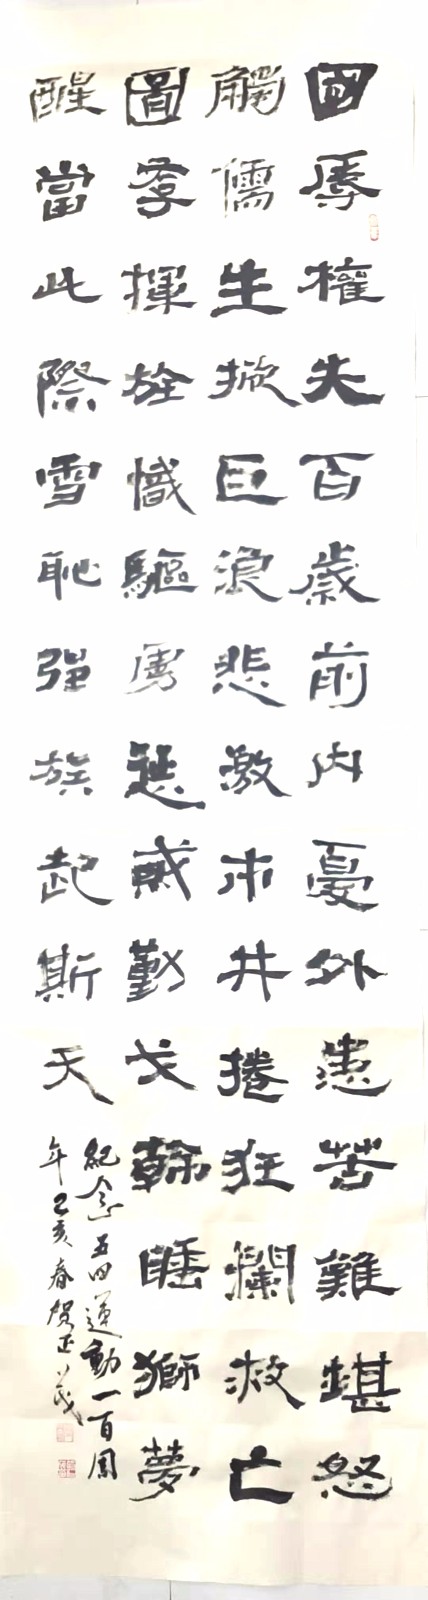 國辱權失百歲前內憂外患苦難堪怒
觸儒生掀巨浪悲激市井捲狂瀾救亡
圖存揮旌幟驅虜懲貳勤戈翰睡獅夢
醒當此際雪恥强族起斯天
紀念五四運動一百周
年己亥春贺正茂